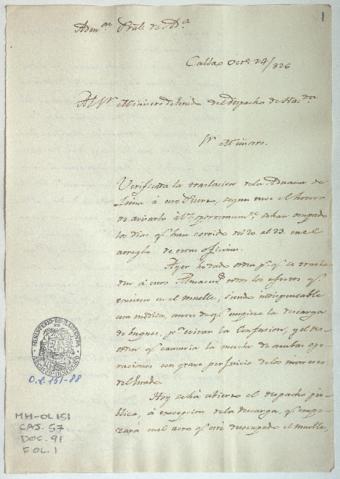 Adm.on Pral. de A.a
1
Callao Oct.e 24/826
Al S.r Ministro de Estado del Despacho de Hac.da
S.r Ministro.
Verificada la traslacion de la Aduana de
Lima á este Puerto, segun tuve el honor
de avisarlo á V.S. oportunam.te se han ocupado
los dias, q.e han corrido del 20 al 23 en el
arreglo de estas oficinas.
Ayer he dado orden p.a q.e se trasla
den á estos Almacen.s todos los efectos q.e
existen en el muelle, siendo indispensable
esta medida, antes de q.e empieze la descarga
de buques, p.a evitar la confusion, y el des
orden q.e causaria la mezcla de ambas ope
raciones con grave perjuicio de los intereses
del Estado.
Hoy se há abierto el despacho pu
blico, á excepcion de la descarga, q.e empe
zará en el acto q.e esté desocupado el muelle,
O.L. 151-88
MH-OL151
CAJ. 57
DOC. 91
FOL. 1